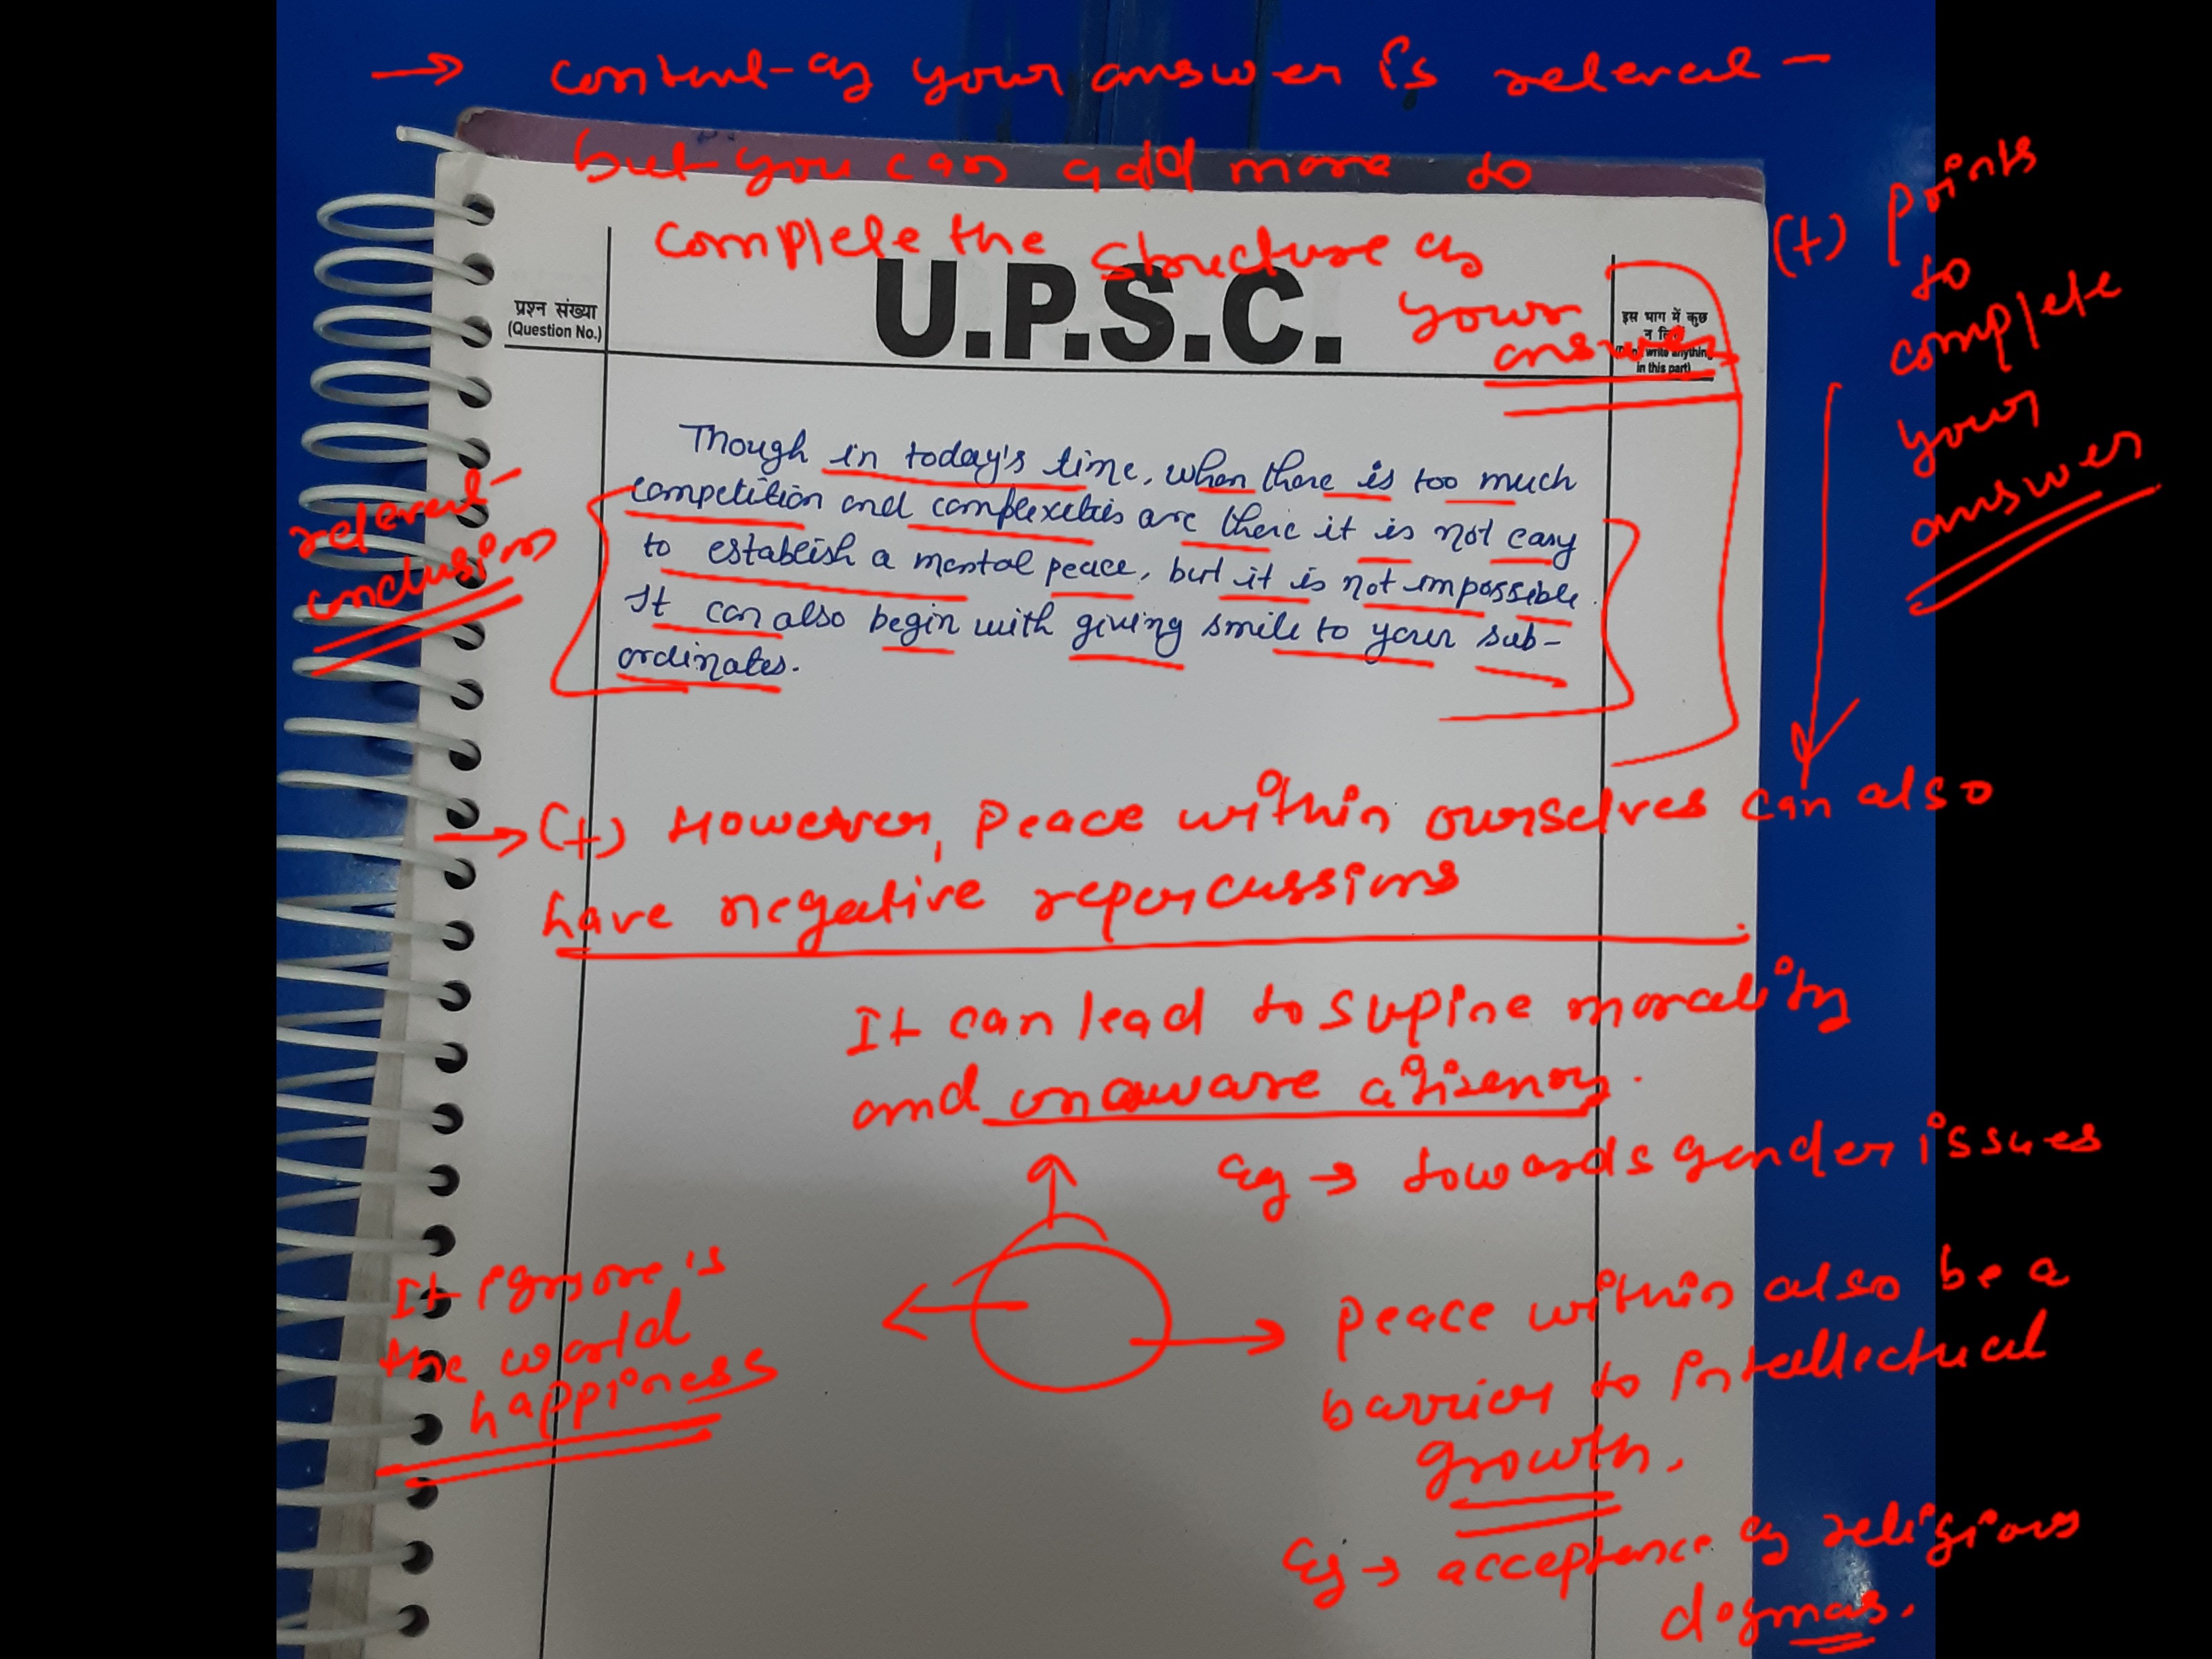 → content of your answer is relevant
but you can add more to
complete the structure of
your
answer
(+) points
to
complete
your
answer
U.P.S.C.
प्रश्न संख्या
(Question No.)
इस भाग में कुछ
न
write anything
in this part)
Though in today's time, when there is too much
competition and complexities are there it is not easy
to establish a mental peace, but it is not impossible.
It can also begin with giving smile to your sub-
ordinates.
relevant
conclusion
→ (+) However, peace within ourselves can also
have negative repercussions
It can lead to supine morality
and unaware citizenry.
Eg → towards gender issues
It ignore's
the world
happiness
peace within also be a
barrier to intellectual
growth.
Eg → acceptance of religious
dogmas.